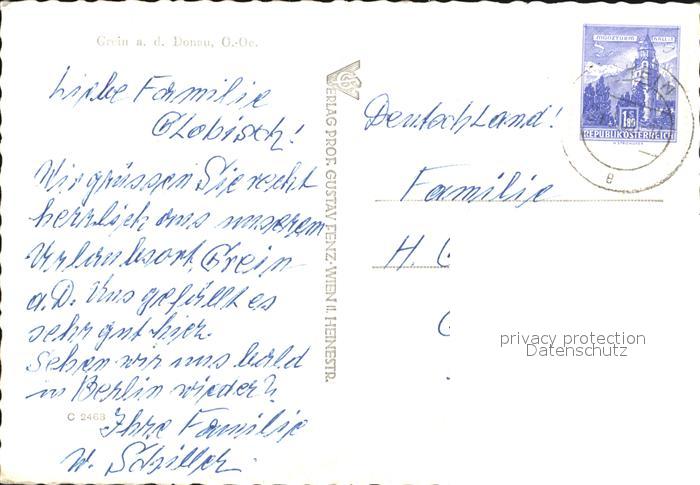 Grein a. d. Donau, O.-Oe.
Liebe Familie
Globisch!
Wir grüssen Sie recht
herzlich aus unserem
Urlaubsort, Grein
a.D. Uns gefällt es
sehr gut hier.
Sehen wir uns bald
in Berlin wieder?
C 2463
Ihre Familie
W. Schiller.
VERLAG PROF. GUSTAV FENZ · WIEN II. HEINESTR.
MÜNZTURM HALL i.
1.S 80
REPUBLIK ÖSTERREICH
Deutschland!
Familie
H. G
G
privacy protection
Datenschutz